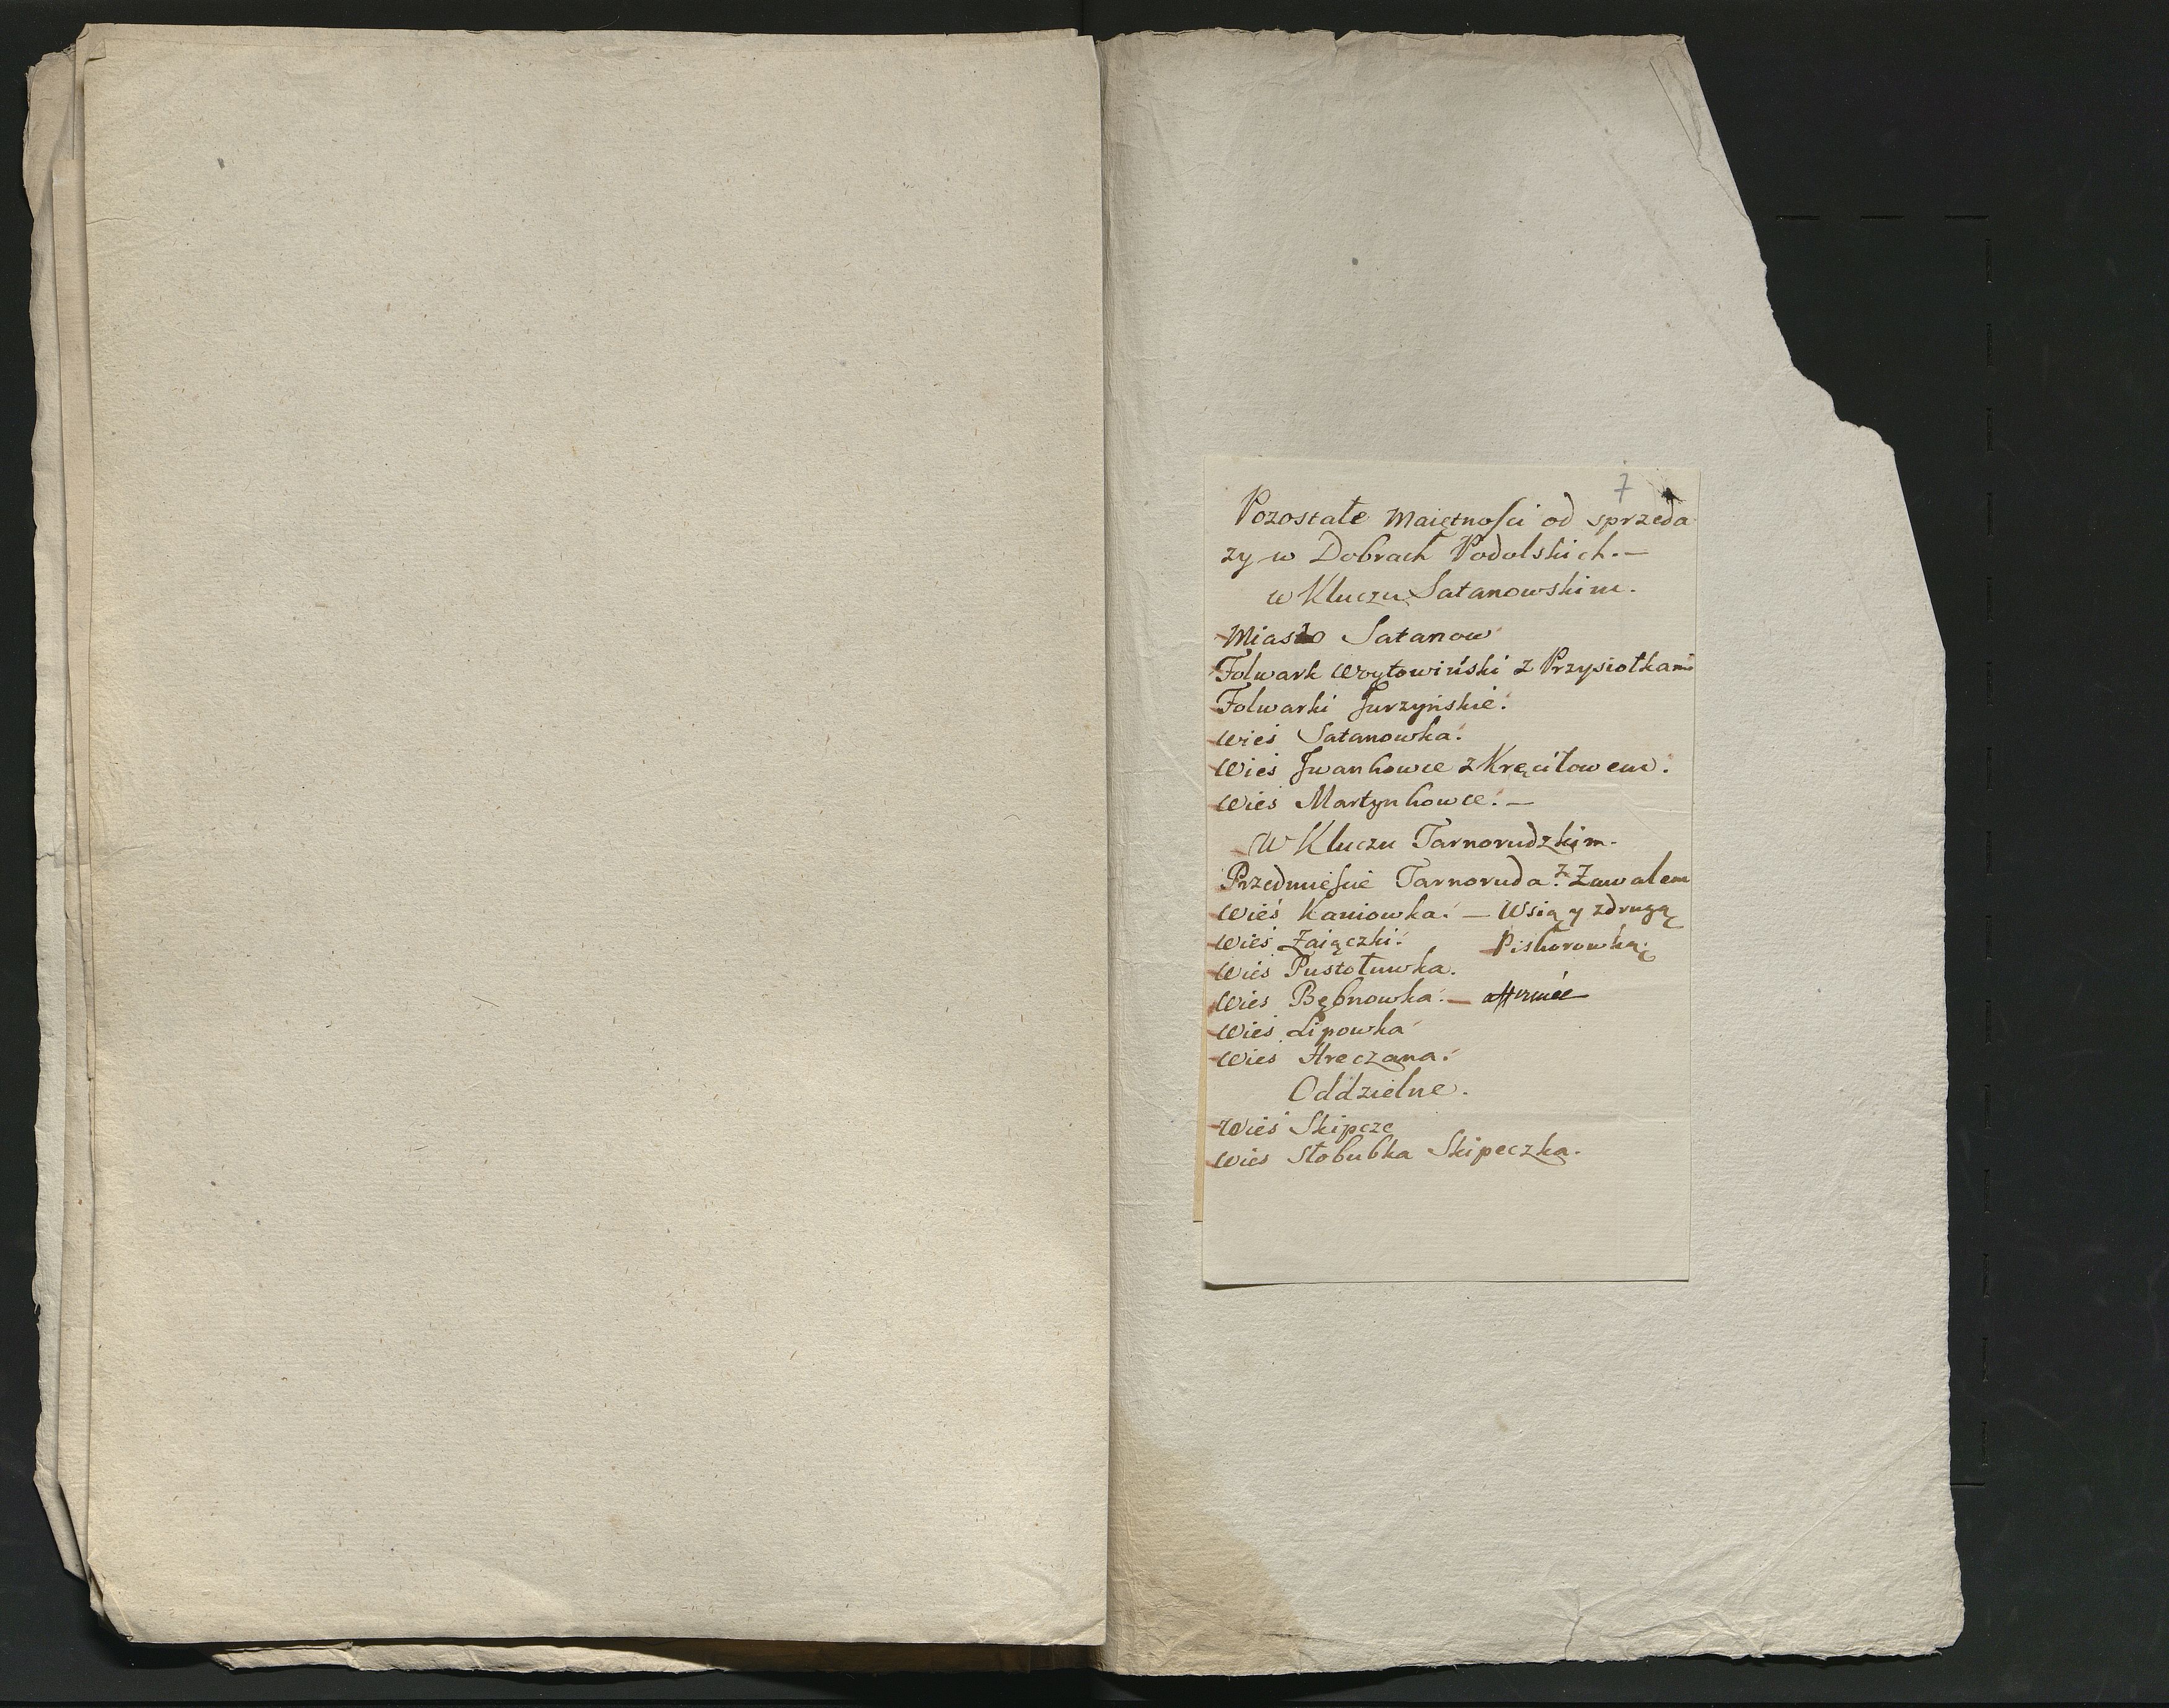 7
Pozostałe Maiętności od sprzeda
ży w Dobrach Podolskich. —
w Kluczu Satanowskim.
Miasto Satanow
Folwark Woytowiński z Przysiołkami
Folwarki Jurzyńskie.
Wieś Satanowka.
Wieś Iwankowce z Kręciłowem.
Wieś Martynkowce. —
W Kluczu Tarnorudzkim.
Przedmieście Tarnoruda. z Zawalem
Wieś Kaniowka. — Wsią y zdrugą
Wieś Zaiączki. Piskorowką.
Wieś Pustołuwka.
Wieś Bębnowka. —
Wieś Lipowka
Wieś Hreczana.
Oddzielne.
Wieś Skipcze
Wieś Słobubka Skipeczka.